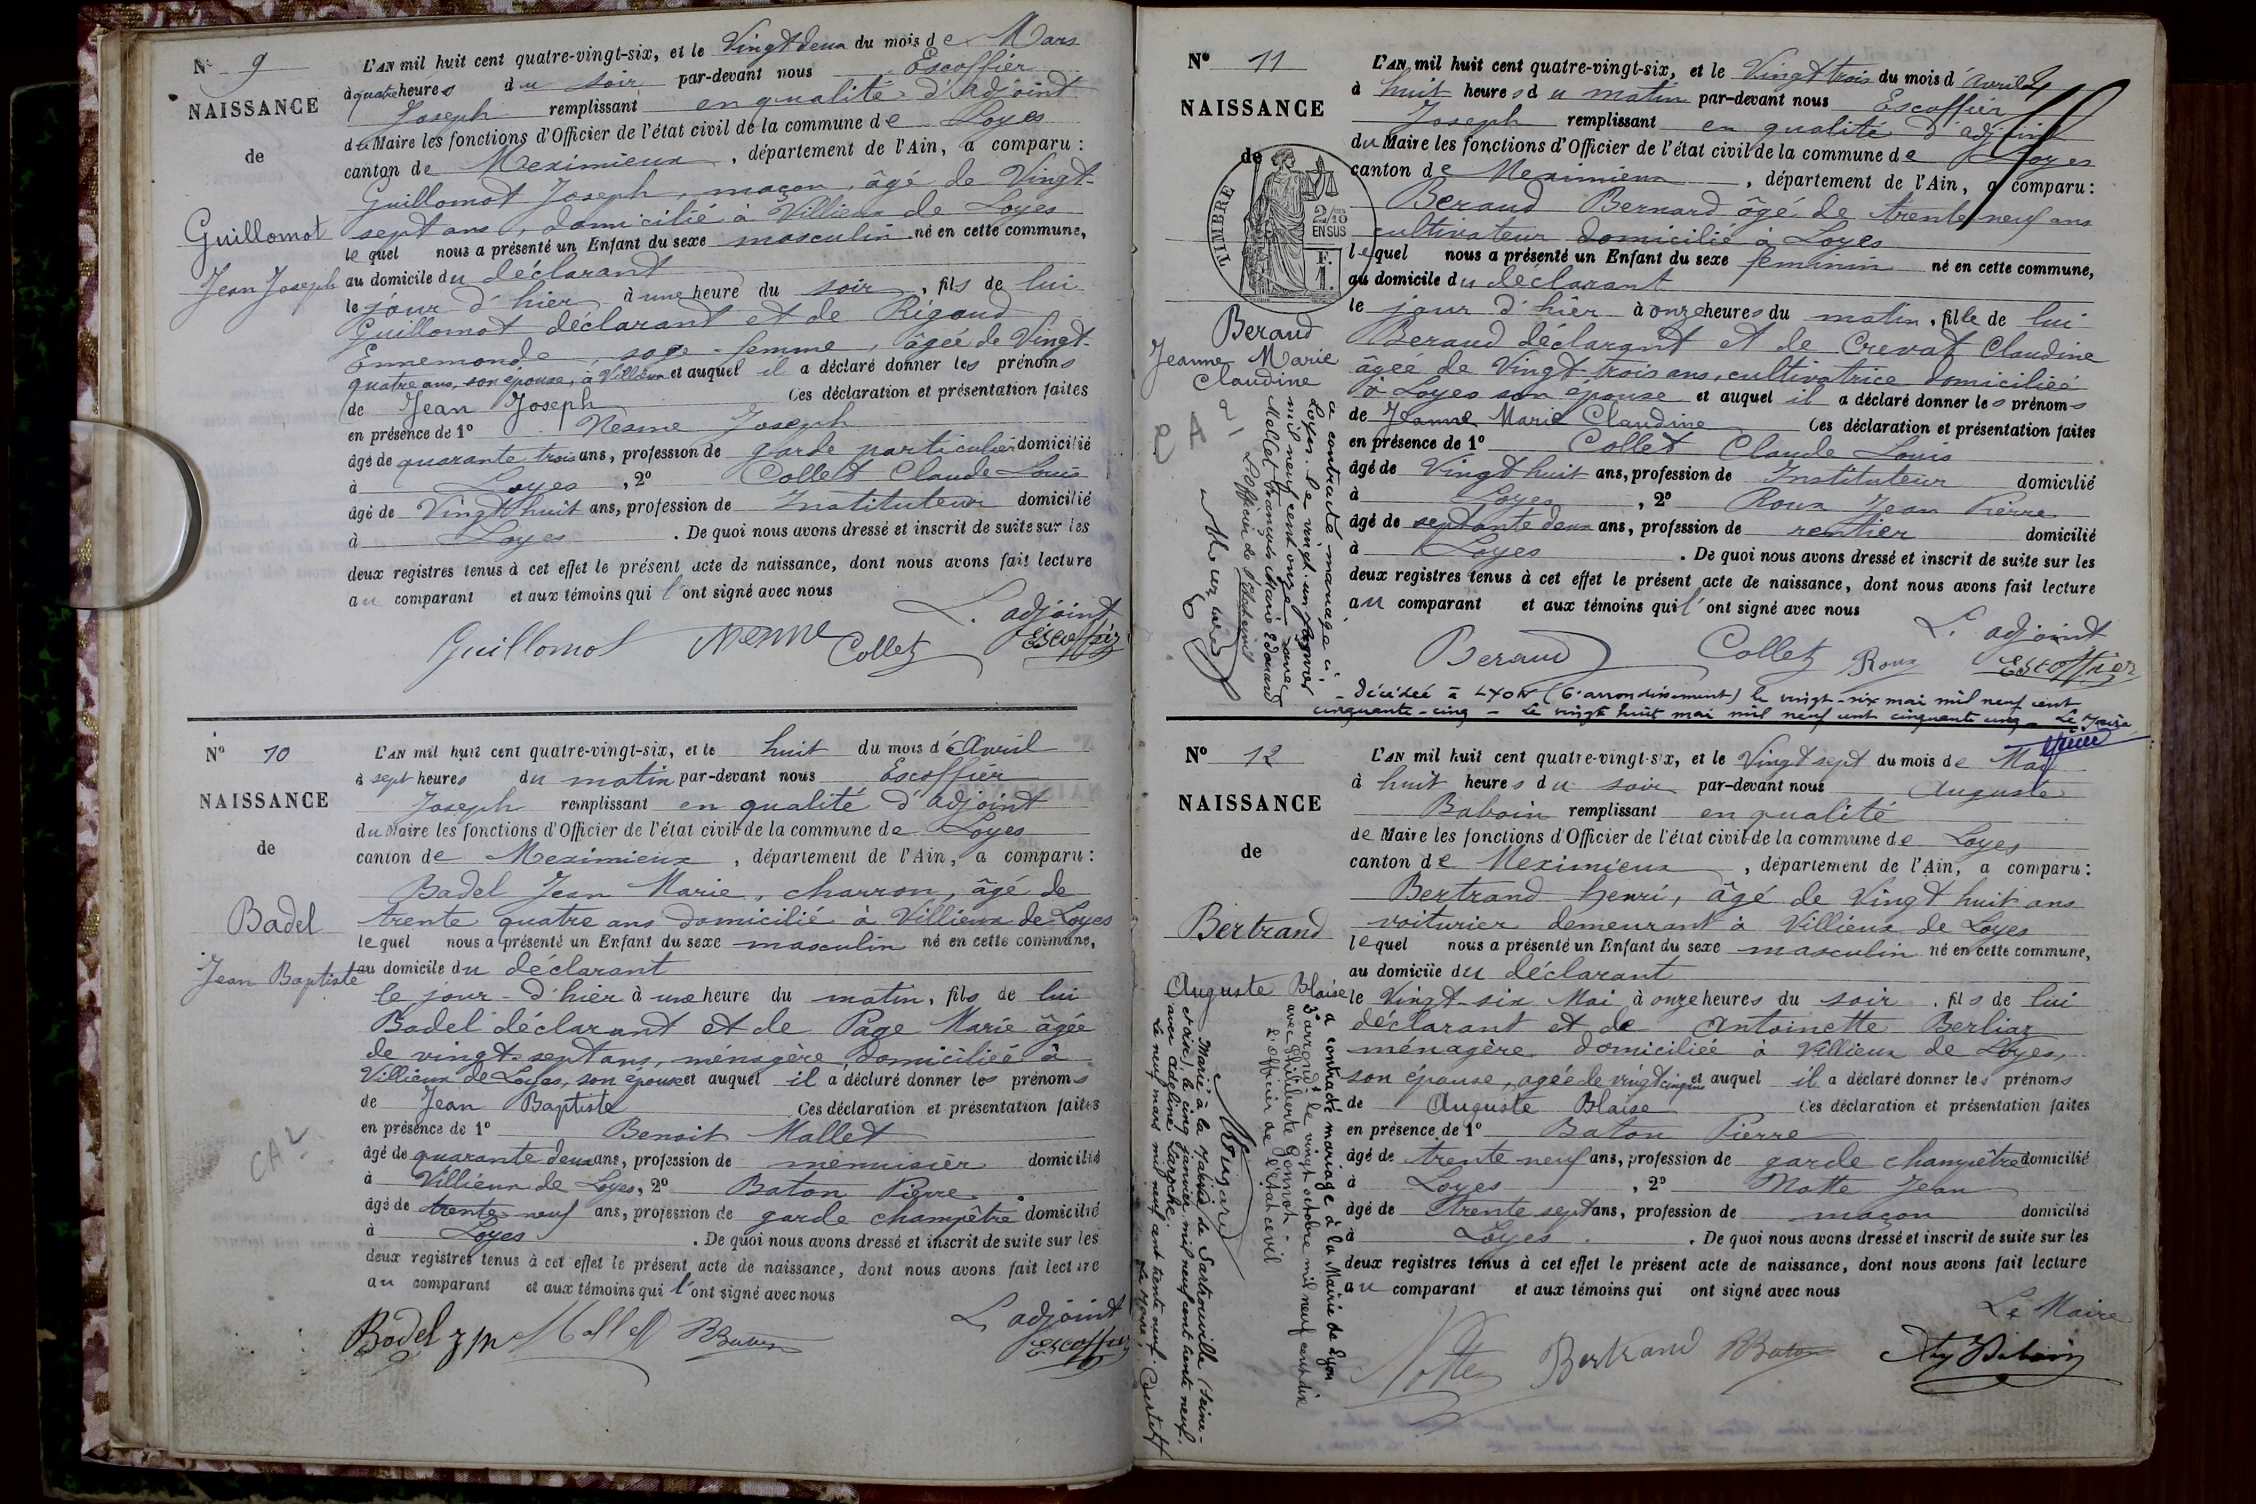 N° 9
NAISSANCE
de
Guillomot
Jean Joseph
L'AN mil huit cent quatre-vingt-six, et le Vingt deux du mois de Mars
à quatre heures du soir par-devant nous Escoffier
Joseph remplissant en qualité d'Adjoint
du Maire les fonctions d'Officier de l'état civil de la commune de Loyes
canton de Meximieux, département de l'Ain, a comparu :
Guillomot Joseph, maçon, âgé de Vingt-
sept ans, domicilié à Villieux de Loyes
lequel nous a présenté un Enfant du sexe masculin né en cette commune,
au domicile du déclarant
le jour d'hier à une heure du soir, fils de lui
Guillomot déclarant et de Rigaud
Ennemonde, sage-femme, âgée de Vingt-
quatre ans, son épouse, à Villieux et auquel il a déclaré donner les prénoms
de Jean Joseph Ces déclaration et présentation faites
en présence de 1° Nesme Joseph
âgé de quarante trois ans, profession de garde particulier domicilié
à Loyes, 2° Collet Claude Louis
âgé de Vingt huit ans, profession de Instituteur domicilié
à Loyes. De quoi nous avons dressé et inscrit de suite sur les
deux registres tenus à cet effet le présent acte de naissance, dont nous avons fait lecture
au comparant et aux témoins qui l'ont signé avec nous
L'adjoint
Guillomot Nesme Collet Escoffier
N° 10
NAISSANCE
de
Badel
Jean Baptiste
CA 2
L'AN mil huit cent quatre-vingt-six, et le huit du mois d'Avril
à sept heures du matin par-devant nous Escoffier
Joseph remplissant en qualité d'adjoint
du Maire les fonctions d'Officier de l'état civil de la commune de Loyes
canton de Meximieux, département de l'Ain, a comparu :
Badel Jean Marie, charron, âgé de
trente quatre ans domicilié à Villieux de Loyes
lequel nous a présenté un Enfant du sexe masculin né en cette commune,
au domicile du déclarant
le jour d'hier à une heure du matin, fils de lui
Badel déclarant et de Page Marie âgée
de vingt-sept ans, ménagère, domiciliée à
Villieux de Loyes, son épouse et auquel il a déclaré donner les prénoms
de Jean Baptiste Ces déclaration et présentation faites
en présence de 1° Benoit Mallet
âgé de quarante deux ans, profession de menuisier domicilié
à Villieux de Loyes, 2° Baton Pierre
âgé de trente neuf ans, profession de garde champêtre domicilié
à Loyes. De quoi nous avons dressé et inscrit de suite sur les
deux registres tenus à cet effet le présent acte de naissance, dont nous avons fait lecture
au comparant et aux témoins qui l'ont signé avec nous
L'adjoint
Badel Mallet Escoffier
N° 11
NAISSANCE
de
TIMBRE
2/10
EN SUS
F.
1.
Beraud
Jeanne Marie
Claudine
a contracté mariage à
Loyes le vingt-un
mil neuf cent onze avec
Mellet François Marie Edouard
L'officier de l'Etat civil
L'AN mil huit cent quatre-vingt-six, et le Vingt trois du mois d'Avril
à huit heures du matin par-devant nous Escoffier
Joseph remplissant en qualité d'adjoint
du Maire les fonctions d'Officier de l'état civil de la commune de Loyes
canton de Meximieux, département de l'Ain, a comparu :
Beraud Bernard âgé de trente neuf ans
cultivateur domicilié à Loyes
lequel nous a présenté un Enfant du sexe féminin né en cette commune,
au domicile du déclarant
le jour d'hier à onze heures du matin, fille de lui
Beraud déclarant et de Crevat Claudine
âgée de Vingt-trois ans, cultivatrice domiciliée
à Loyes son épouse et auquel il a déclaré donner les prénoms
de Jeanne Marie Claudine Ces déclaration et présentation faites
en présence de 1° Collet Claude Louis
âgé de Vingt huit ans, profession de Instituteur domicilié
à Loyes, 2° Roux Jean Pierre
âgé de septante deux ans, profession de rentier domicilié
à Loyes. De quoi nous avons dressé et inscrit de suite sur les
deux registres tenus à cet effet le présent acte de naissance, dont nous avons fait lecture
au comparant et aux témoins qui l'ont signé avec nous
L'adjoint
Beraud Collet Roux Escoffier
- Décédée à LYON (6e arrondissement) le vingt-six mai mil neuf cent
cinquante-cinq - Le vingt huit mai mil neuf cent cinquante cinq - Le Maire
N° 12
NAISSANCE
de
Bertrand
Auguste Blaise
a contracté mariage à la Mairie de Lyon
3e arrondt le vingt octobre mil neuf cent dix
avec Philiberte Gonnot -
L'officier de l'état civil
Marié à la Mairie de Sartrouville (Seine-
et-Oise), le cinq janvier mil neuf cent trente neuf,
avec Adeline Larpche.
Le neuf mars mil neuf cent trente neuf.
Le Maire,
L'AN mil huit cent quatre-vingt-six, et le Vingt sept du mois de Mai
à huit heures du soir par-devant nous Auguste
Baboin remplissant en qualité
de Maire les fonctions d'Officier de l'état civil de la commune de Loyes
canton de Meximieux, département de l'Ain, a comparu :
Bertrand henri, âgé de Vingt huit ans
voiturier demeurant à Villieux de Loyes
lequel nous a présenté un Enfant du sexe masculin né en cette commune,
au domicile du déclarant
le Vingt-six Mai à onze heures du soir, fils de lui
déclarant et de Antoinette Berliaz
ménagère domiciliée à Villieux de Loyes,
son épouse, agée de vingt cinq ans et auquel il a déclaré donner les prénoms
de Auguste Blaise Ces déclaration et présentation faites
en présence de 1° Baton Pierre
âgé de trente neuf ans, profession de garde champêtre domicilié
à Loyes, 2° Motte Jean
âgé de trente sept ans, profession de maçon domicilié
à Loyes. De quoi nous avons dressé et inscrit de suite sur les
deux registres tenus à cet effet le présent acte de naissance, dont nous avons fait lecture
au comparant et aux témoins qui ont signé avec nous
Le Maire
Motte Bertrand Baton